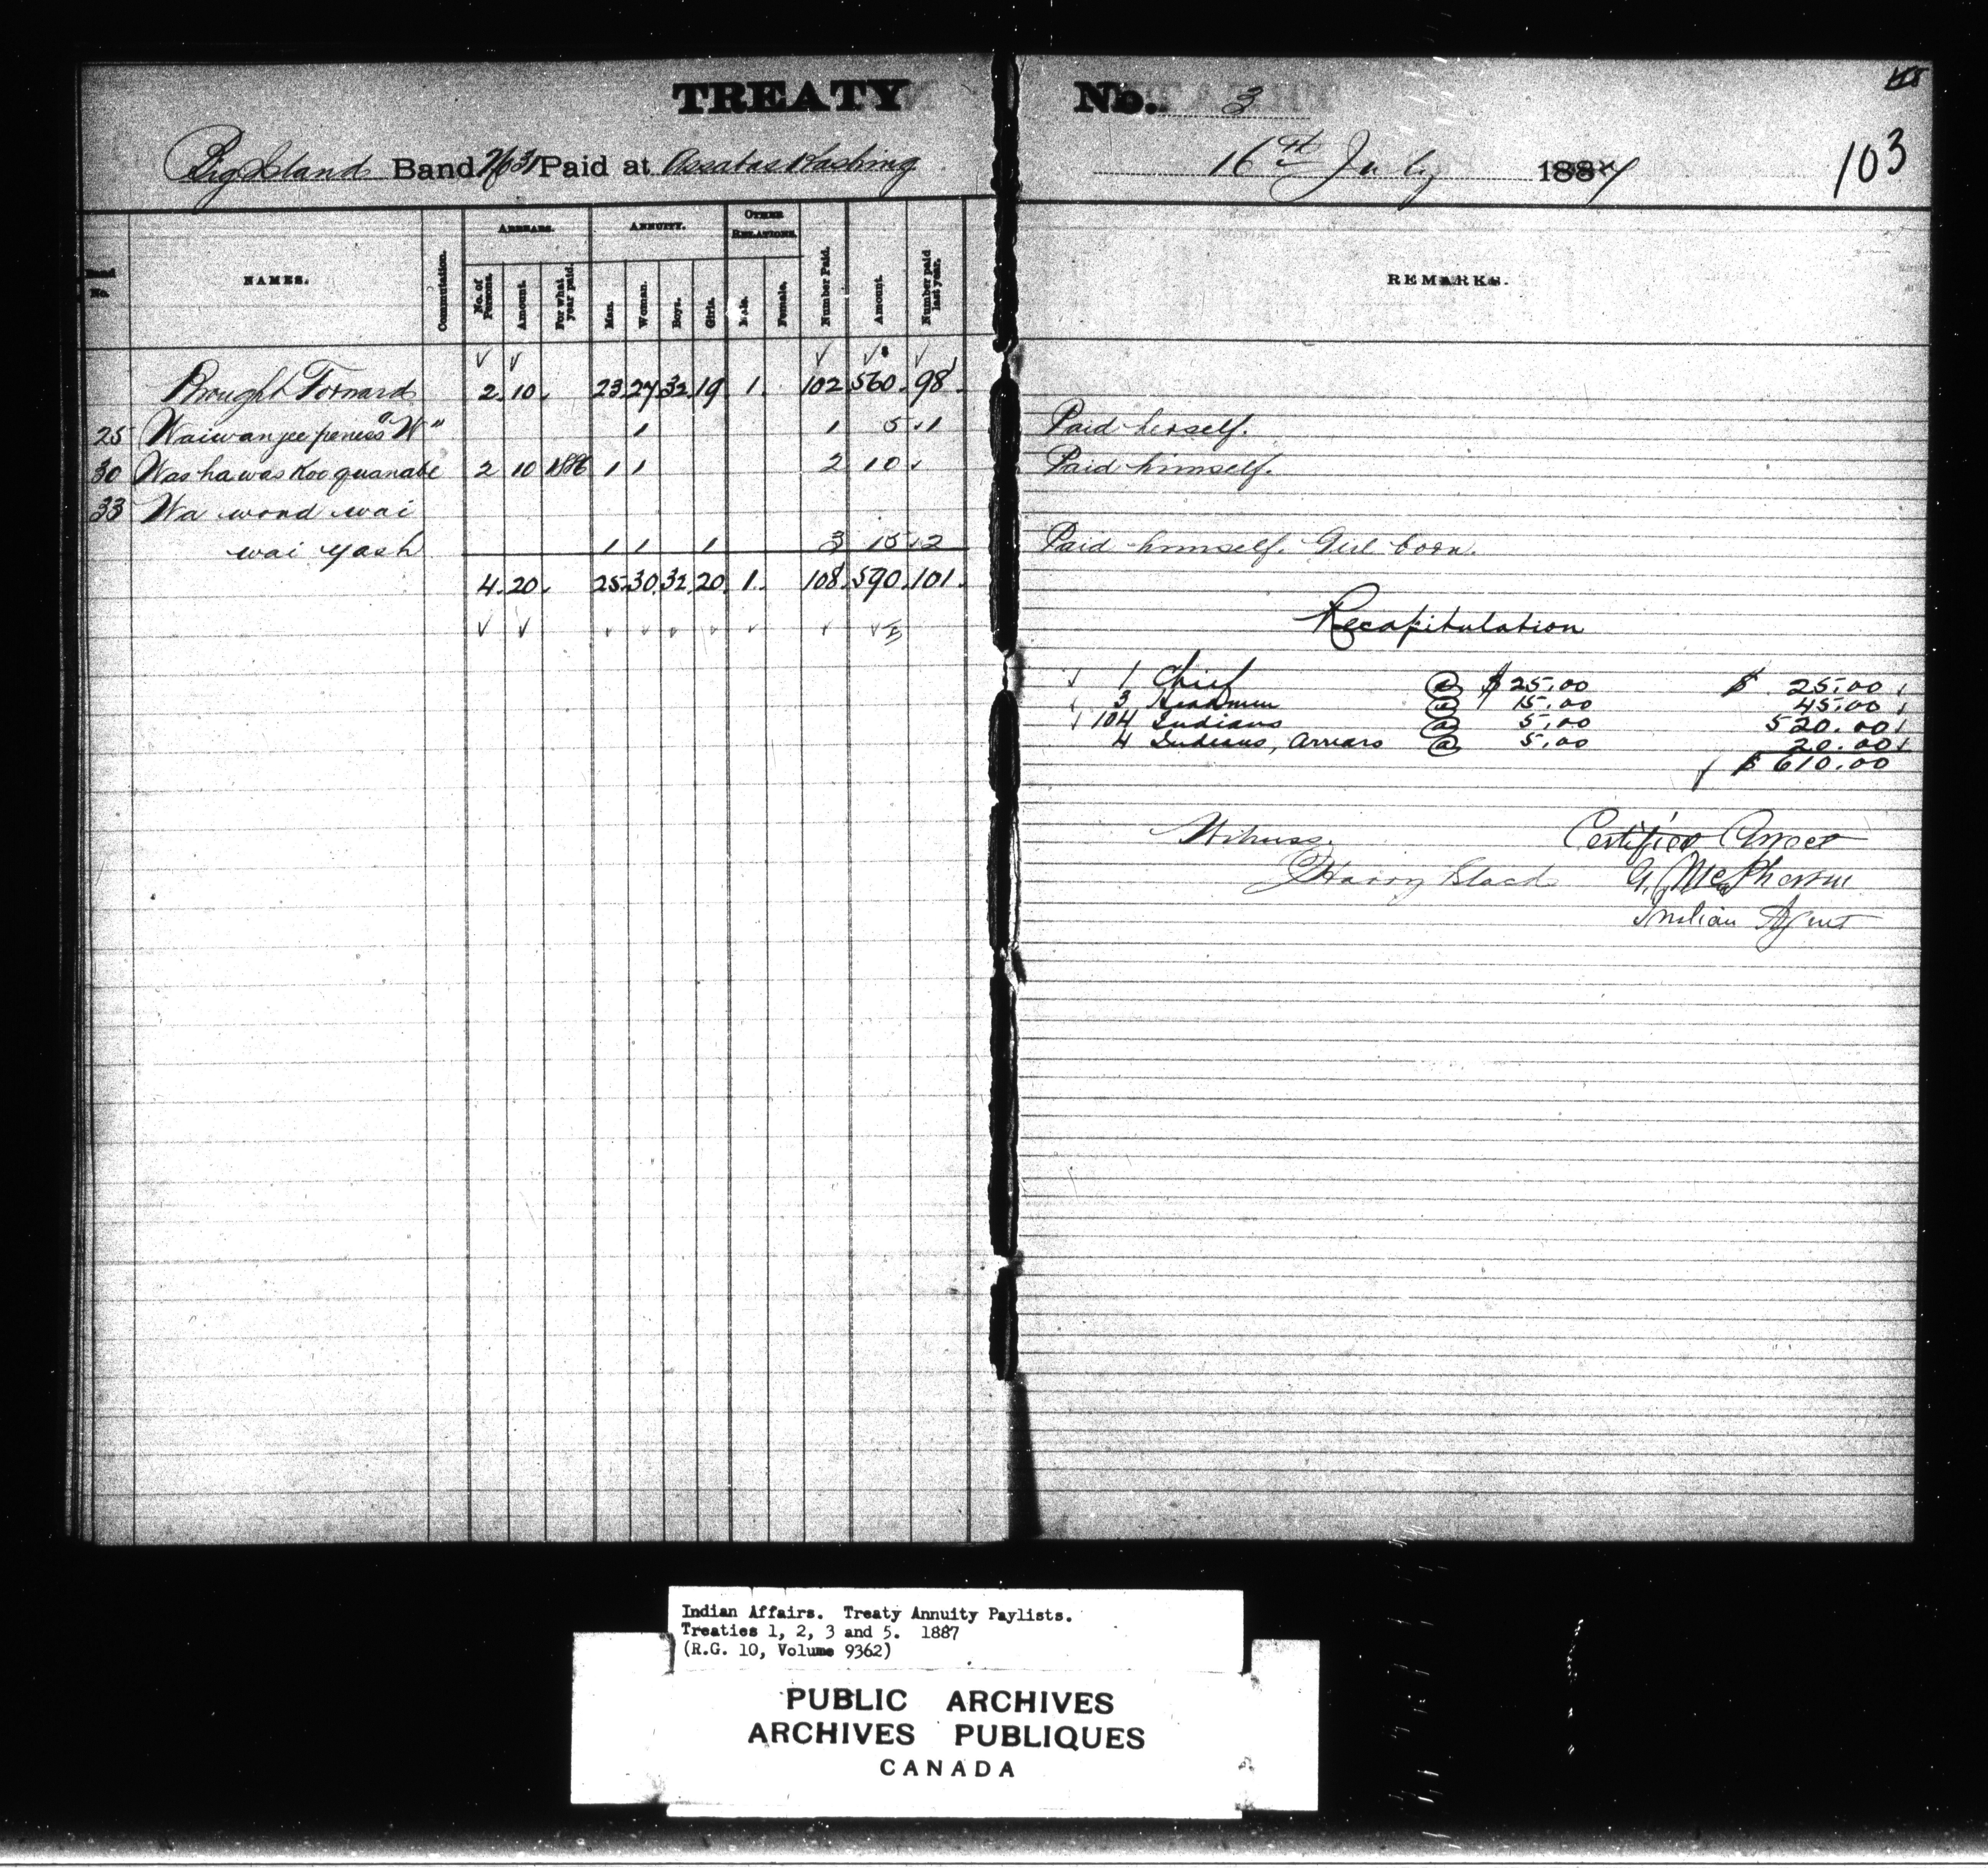 TREATY No. 3
103
Big Island Band No 31 Paid at Assabaskashing 16th July 1887
Band No. NAMES. Commutation. ARREARS. ANNUITY. OTHER RELATIONS. Number Paid. Amount. Number paid last year. REMARKS.
No. of Persons. Amount. For what year paid. Men. Women. Boys. Girls. Male. Female.
Brought Forward 2. 10. 23. 27. 32. 19 1. 102. 560. 98.
25 Waiwanjeepeness "W" 1 1 5 1 Paid herself.
30 Washawaskooquanabe 2 10 1886 1 1 2 10 Paid himself.
33 Wa wond wai
wai yash 1 1 1 3 15 2 Paid himself. Girl born.
4. 20. 25. 30. 32. 20. 1. 108. 590. 101.
Recapitulation
1 Chief @ $ 25.00 $ 25.00
3 Headmen @ 15.00 45.00
104 Indians @ 5.00 520.00
4 Indians, Arrears @ 5.00 20.00
$ 610.00
Witness. Certified Correct
Harry Black G. McPherson
Indian Agent
Indian Affairs. Treaty Annuity Paylists.
Treaties 1, 2, 3 and 5. 1887
(R.G. 10, Volume 9362)
PUBLIC ARCHIVES
ARCHIVES PUBLIQUES
CANADA